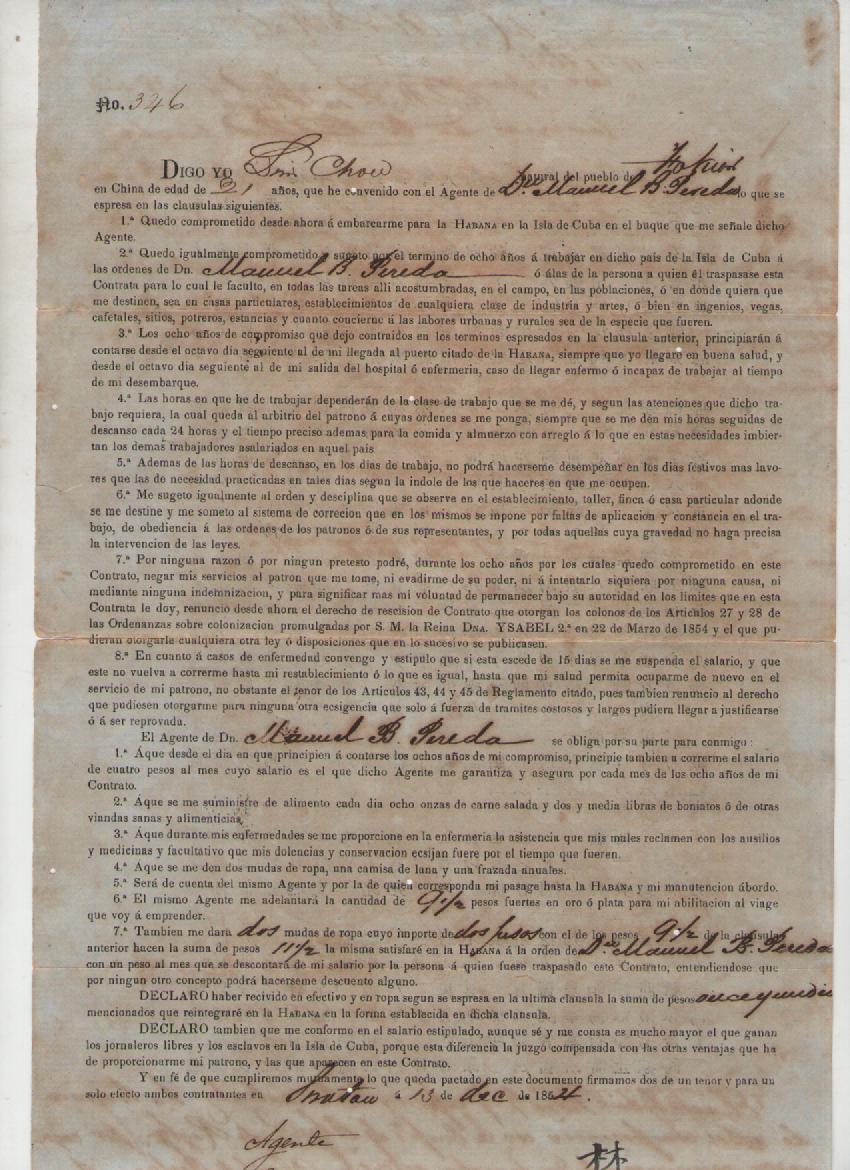 No. 346
DIGO YO Lin Chou natural del pueblo de Fokien
en China de edad de 21 años, que he convenido con el Agente de Dn. Manuel B. Pereda lo que se
espresa en las clausulas siguientes.
1.ª Quedo comprometido desde ahora á embarcarme para la HABANA en la Isla de Cuba en el buque que me señale dicho
Agente.
2.ª Quedo igualmente comprometido y sugeto por el termino de ocho años á trabajar en dicho pais de la Isla de Cuba á
las ordenes de Dn. Manuel B. Pereda ó álas de la persona a quien él traspasase esta
Contrata para lo cual le faculto, en todas las tareas alli acostumbradas, en el campo, en las poblaciones, ó en donde quiera que
me destinen, sea en casas particulares, establecimientos de cualquiera clase de industria y artes, ó bien en ingenios, vegas,
cafetales, sitios, potreros, estancias y cuanto concierne á las labores urbanas y rurales sea de la especie que fueren.
3.ª Los ocho años de compromiso que dejo contraidos en los terminos espresados en la clausula anterior, principiarán á
contarse desde el octavo dia seguiente al de mi llegada al puerto citado de la HABANA, siempre que yo llegare en buena salud, y
desde el octavo dia seguiente al de mi salida del hospital ó enfermeria, caso de llegar enfermo ó incapaz de trabajar al tiempo
de mi desembarque.
4.ª Las horas en que he de trabajar dependerán de la clase de trabajo que se me dé, y segun las atenciones que dicho tra-
bajo requiera, la cual queda al arbitrio del patrono á cuyas ordenes se me ponga, siempre que se me den mis horas seguidas de
descanso cada 24 horas y el tiempo preciso ademas para la comida y almuerzo con arreglo á lo que en estas necesidades imbier-
tan los demas trabajadores asalariados en aquel pais.
5.ª Ademas de las horas de descanso, en los dias de trabajo, no podrá hacerseme desempeñar en los dias festivos mas lavo-
res que las de necesidad practicadas en tales dias segun la indole de los que haceres en que me ocupen.
6.ª Me sugeto igualmente al orden y desciplina que se observe en el establecimiento, taller, finca ó casa particular adonde
se me destine y me someto al sistema de correcion que en los mismos se inpone por faltas de aplicacion y constancia en el tra-
bajo, de obediencia á las ordenes de los patronos ó de sus representantes, y por todas aquellas cuya gravedad no haga precisa
la intervencion de las leyes.
7.ª Por ninguna razon ó por ningun pretesto podré, durante los ocho años por los cuales quedo comprometido en este
Contrato, negar mis servicios al patron que me tome, ni evadirme de su poder, ni á intentarlo siquiera por ninguna causa, ni
mediante ninguna indemnizacion, y para significar mas mi voluntad de permanecer bajo su autoridad en los limites que en esta
Contrata le doy, renunció desde ahora el derecho de rescision de Contrato que otorgan los colonos de los Articulos 27 y 28 de
las Ordenanzas sobre colonizacion promulgadas por S. M. la Reina DNA. YSABEL 2.ª en 22 de Marzo de 1854 y el que pu-
dieran otorgarle cualquiera otra ley ó disposiciones que en lo sucesivo se publicasen.
8.ª En cuanto á casos de enfermedad convengo y estipulo que si esta escede de 15 dias se me suspenda el salario, y que
este no vuelva a correrme hasta mi restablecimiento ó lo que es igual, hasta que mi salud permita ocuparme de nuevo en el
servicio de mi patrono, no obstante el tenor de los Articulos 43, 44 y 45 de Reglamento citado, pues tambien renuncio al derecho
que pudiesen otorgarme para ninguna otra ecsigencia que solo á fuerza de tramites costosos y largos pudiera llegar a justificarse
ó á ser reprovada.
El Agente de Dn. Manuel B. Pereda se obliga por su parte para conmigo :
1.ª Áque desde el dia en que principien á contarse los ochos años de mi compromiso, principie tambien a correrme el salario
de cuatro pesos al mes cuyo salario es el que dicho Agente me garantiza y asegura por cada mes de los ocho años de mi
Contrato.
2.ª Áque se me suministre de alimento cada dia ocho onzas de carne salada y dos y media libras de boniatos ó de otras
viandas sanas y alimenticias.
3.ª Áque durante mis enfermedades se me proporcione en la enfermeria la asistencia que mis males reclamen con los ausilios
y medicinas y facultativo que mis dolencias y conservacion ecsijan fuere por el tiempo que fueren.
4.ª Áque se me den dos mudas de ropa, una camisa de lana y una frazada anuales.
5.ª Será de cuenta del mismo Agente y por la de quien corresponda mi pasage hasta la HABANA y mi manutencion ábordo.
6.ª El mismo Agente me adelantará la cantidad de 9 1/2 pesos fuertes en oro ó plata para mi abilitacion al viage
que voy á emprender.
7.ª Tambien me dara dos mudas de ropa cuyo importe de dos pesos con el de los pesos 9 1/2 de la clausula
anterior hacen la suma de pesos 11 1/2 la misma satisfaré en la HABANA á la orden de Dn. Manuel B. Pereda
con un peso al mes que se descontará de mi salario por la persona á quien fuese traspasado este Contrato, entendiendose que
por ningun otro concepto podrá hacerseme descuento alguno.
DECLARO haber recivido en efectivo y en ropa segun se espresa en la ultima clausula la suma de pesos once y medio
mencionados que reintegraré en la HABANA en la forma establecida en dicha clausula.
DECLARO tambien que me conformo en el salario estipulado, aunque sé y me consta es mucho mayor el que ganan
los jornaleros libres y los esclavos en la Isla de Cuba, porque esta diferencia la juzgó compensada con las otras ventajas que ha
de proporcionarme mi patrono, y las que aparecen en este Contrato.
Y en fé de que cumpliremos mutuamente lo que queda pactado en este documento firmamos dos de un tenor y para un
solo efecto ambos contratantes en Swatau á 13 de dec de 1854.
Agente
林